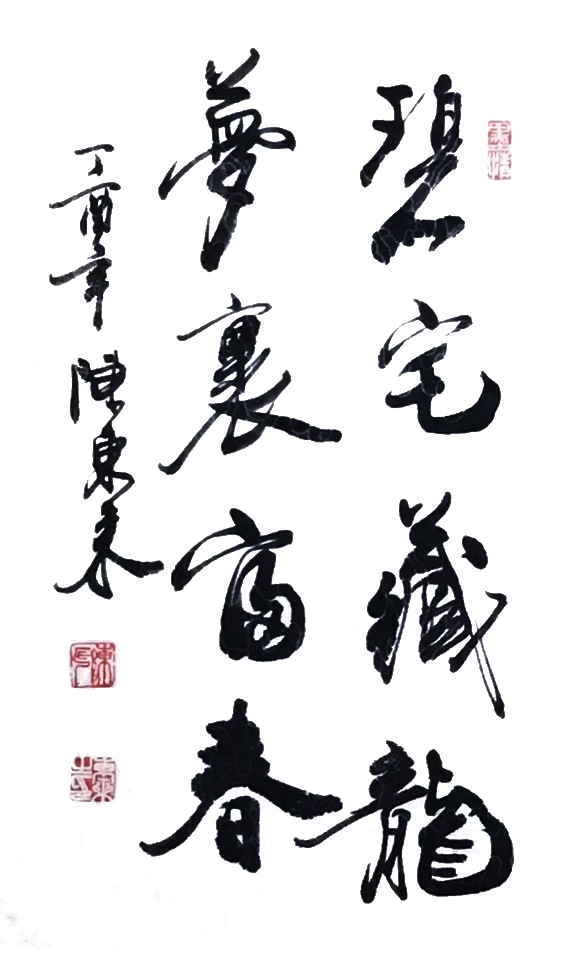 碧宅藏龍
夢裏富春
丁酉年 陳東來